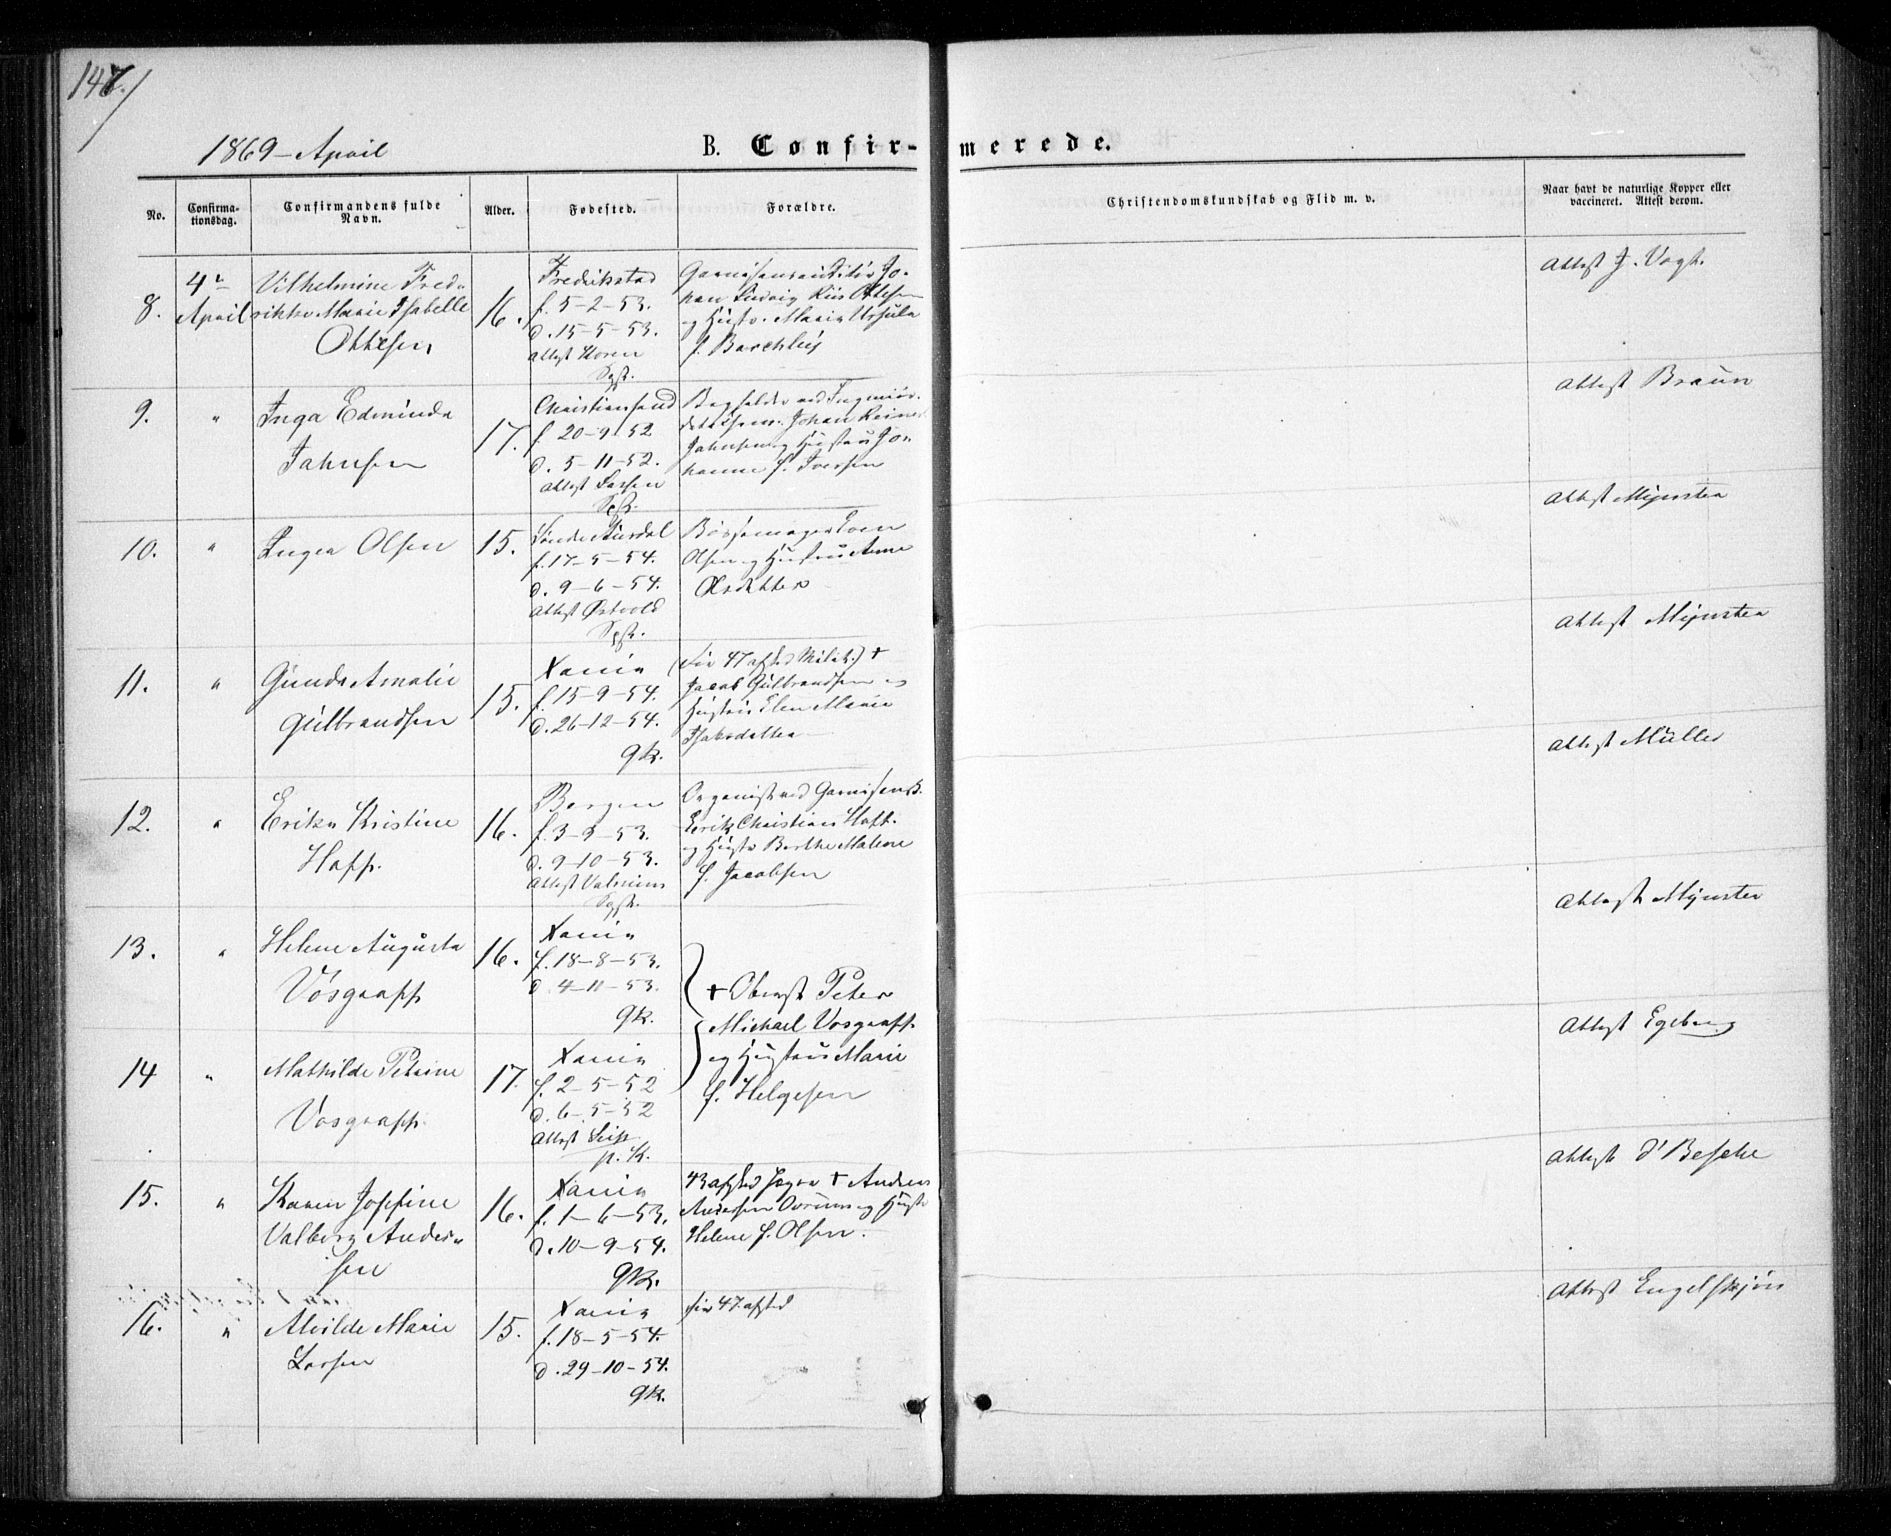 147.
1869 – April
B. Confirmerede.
No.
Confirmationsdag.
Confirmandens fulde Navn.
Alder.
Fødested.
Forældre.
Christendomskundskab og Flid m. v.
Naar havt de naturlige Kopper eller vaccineret. Attest derom.
8.
4de April
Vilhelmine Fred-
rikke Marie Isabelle
Ottesen
16.
Fredrikstad
f. 5-2-53.
d. 15-5-53.
Attest
Sgpr.
Garnisonsauditør Jo-
han Ludvig Riis Ottesen
og Hustr. Marie Ursula
f. Barchlus
Attest J. Vogt.
9.
"
Inga Edminda
Jahnsen
17.
Christiansand
f. 20-9-52
d. 5-11-52.
Attest Lassen
Sgpr.
Bogholder ved Ingeniør-
Johan Reiner
Jahnsen og Hustru Jo-
hanne f. Iversen
Attest Braun
10.
"
Inger Olsen
15.
Søndre Aurdal
f. 17-5-54.
d. 9-6-54.
Attest Østvold
Sgpr.
Bøssemager Even
Olsen og Hustru Anne
Olsdatter
Attest Mynster
11.
"
Gunda Amalie
Gulbrandsen
15.
Xania
f. 15-9-54.
d. 26-12-54.
gk.
(Fir 47 afsked Milit.) +
Jacob Gulbrandsen og
Hustru Elen Marie
Isaksdatter
Attest Mynster
12.
"
Erika Kristine
Hoff.
16.
Bergen
f. 3-9-53.
d. 9-10-53.
Attest
Sgpr.
Organist ved Garnisons K.
Erik Christian Hoff.
og Hustr Berthe Malene
f. Jacobsen
Attest Müller
13.
"
Helene Augusta
Vosgraff
16.
Xania
f. 18-8-53.
d. 4-11-53.
gk.
+ Oberst Peter
Michael Vosgraff.
og Hustru Marie
f. Helgesen
Attest Mynster
14
"
Mathilde Petrine
Vosgraff.
17.
Xania
f. 2-5-52
d. 6-5-52
Attest
p. K.
Attest Egeberg
15.
"
Karen Josefine
Valborg Ander-
sen
16.
Xania
f. 1-6-53.
d. 10-9-54.
gk.
43 afsked Jæger + Andreas
Andersen og Hustr
Helene f. Olsen.
Attest d'Besche
16.
"
Alvilde Marie
Larsen
15.
Xania
f. 18-5-54.
d. 29-10-54.
gk.
Fir 47 afsked
Attest Engelskjøn